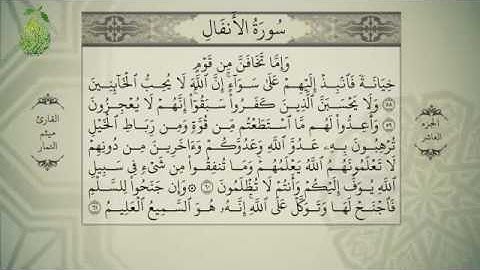 سُورَةُ الأَنفَالِ
وَإِمَّا تَخَافَنَّ مِن قَوْمٍ
خِيَانَةً فَانۢبِذْ إِلَيْهِمْ عَلَىٰ سَوَآءٍ ۚ إِنَّ ٱللَّهَ لَا يُحِبُّ ٱلْخَآئِنِينَ
٥٨ وَلَا يَحْسَبَنَّ ٱلَّذِينَ كَفَرُوا۟ سَبَقُوٓا۟ ۚ إِنَّهُمْ لَا يُعْجِزُونَ
٥٩ وَأَعِدُّوا۟ لَهُم مَّا ٱسْتَطَعْتُم مِّن قُوَّةٍ وَمِن رِّبَاطِ ٱلْخَيْلِ
تُرْهِبُونَ بِهِۦ عَدُوَّ ٱللَّهِ وَعَدُوَّكُمْ وَءَاخَرِينَ مِن دُونِهِمْ
لَا تَعْلَمُونَهُمُ ٱللَّهُ يَعْلَمُهُمْ ۚ وَمَا تُنفِقُوا۟ مِن شَىْءٍ فِى سَبِيلِ
ٱللَّهِ يُوَفَّ إِلَيْكُمْ وَأَنتُمْ لَا تُظْلَمُونَ ٦٠ ۞ وَإِن جَنَحُوا۟ لِلسَّلْمِ
فَٱجْنَحْ لَهَا وَتَوَكَّلْ عَلَى ٱللَّهِ ۚ إِنَّهُۥ هُوَ ٱلسَّمِيعُ ٱلْعَلِيمُ ٦١
الجزء
العاشر
القارئ
ميثم
التمار